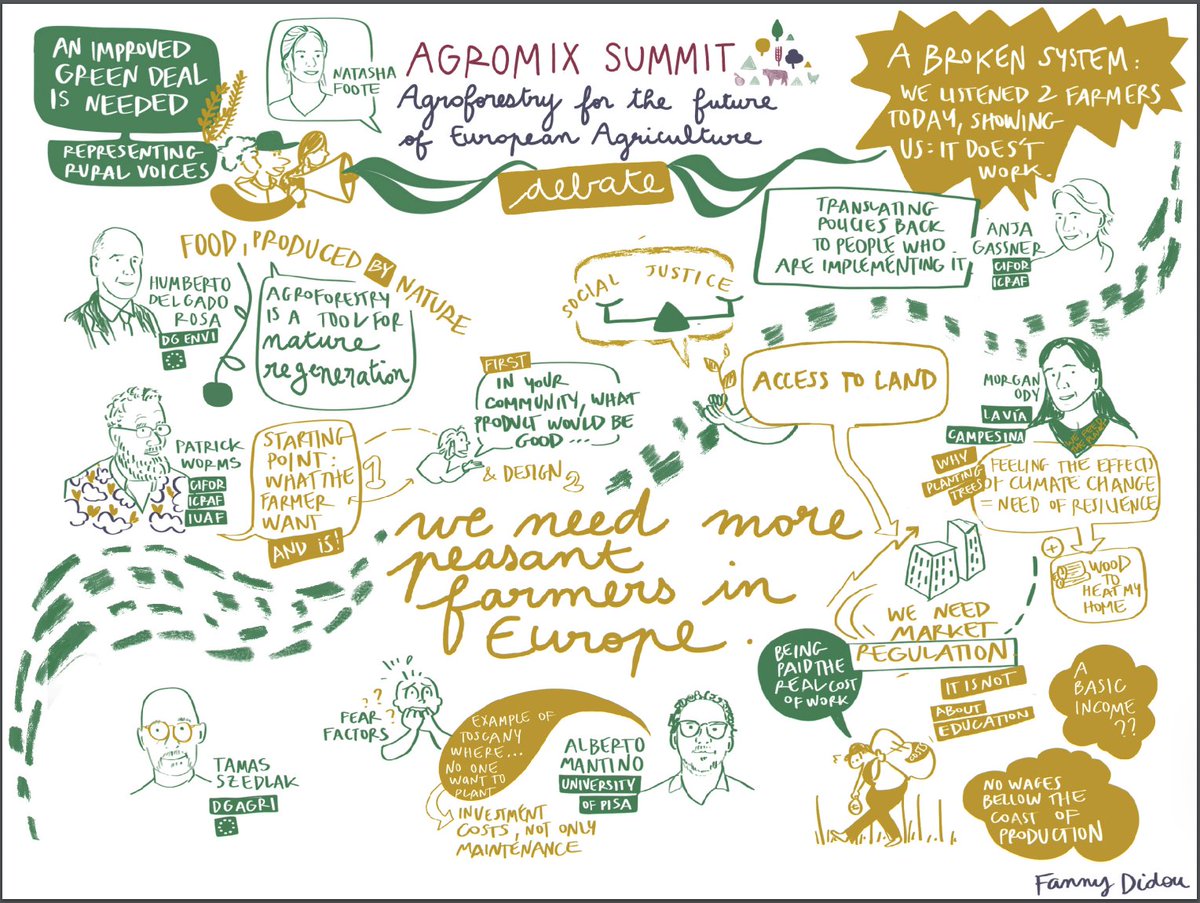 AN IMPROVED
GREEN DEAL
IS NEEDED
REPRESENTING
RURAL VOICES
NATASHA
FOOTE
AGROMIX SUMMIT
Agroforestry for the future
of European Agriculture
debate
A BROKEN SYSTEM:
WE LISTENED 2 FARMERS
TODAY, SHOWING
US: IT DOES'T
WORK.
TRANSLATING
POLICIES BACK
TO PEOPLE WHO
ARE IMPLEMENTING IT
ANJA
GASSNER
CIFOR
ICRAF
HUMBERTO
DELGADO
ROSA
DG ENVI
FOOD, PRODUCED BY NATURE
AGROFORESTRY
IS A TOOL FOR
nature
regeneration
SOCIAL JUSTICE
ACCESS TO LAND
MORGAN
ODY
LA VIA
CAMPESINA
PATRICK
WORMS
CIFOR
ICRAF
IUAF
STARTING
POINT:
WHAT THE
FARMER
WANT
AND IS!
1
FIRST
IN YOUR
COMMUNITY, WHAT
PRODUCT WOULD BE
GOOD ...
& DESIGN 2
WHY
PLANTING
TREES
FEELING THE EFFECTS
OF CLIMATE CHANGE
= NEED OF RESILIENCE
+
WOOD
TO
HEAT MY
HOME
we need more
peasant
farmers in
Europe.
WE NEED
MARKET
REGULATION
IT IS NOT
ABOUT
EDUCATION
BEING
PAID THE
REAL COST
OF WORK
COSTS
A
BASIC
INCOME
??
NO WAGES
BELLOW THE
COAST OF
PRODUCTION
TAMAS
SZEDLAK
DG AGRI
FEAR
FACTORS
? ? ?
EXAMPLE OF
TOSCANY
WHERE...
NO ONE
WANT TO
PLANT
INVESTMENT
COSTS, NOT ONLY
MAINTENANCE
ALBERTO
MANTINO
UNIVERSITY
OF PISA
Fanny Didou